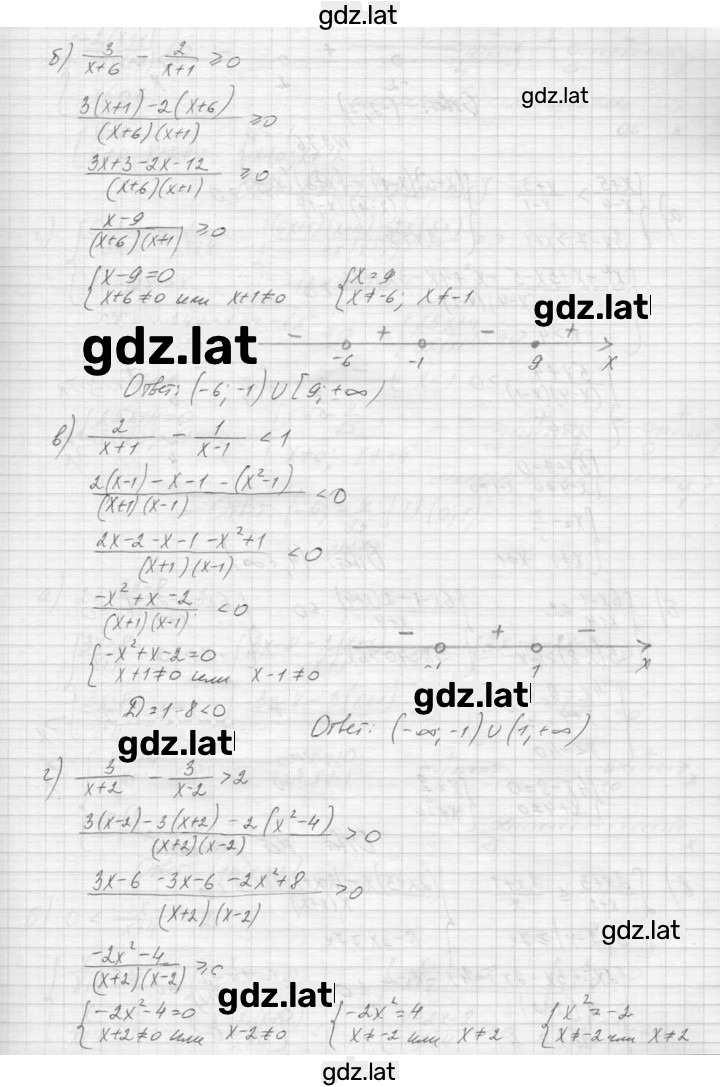 gdz.lat
б) 3/(x+6) − 2/(x+1) ≥ 0
gdz.lat
(3(x+1) −2(x+6))/((x+6)(x+1)) ≥ 0
(3x+3−2x−12)/((x+6)(x+1)) ≥ 0
(x−9)/((x+6)(x+1)) ≥ 0
{ x−9=0
x+6≠0 или x+1≠0
{ x=9
x≠−6; x≠−1
gdz.lat
gdz.lat
− + − +
−6 −1 9 x
Ответ: (−6; −1) ∪ [9; +∞)
в) 2/(x+1) − 1/(x−1) < 1
(2(x−1) − x−1 −(x²−1))/((x+1)(x−1)) < 0
(2x−2 −x−1 −x²+1)/((x+1)(x−1)) < 0
(−x²+x−2)/((x+1)(x−1)) < 0
{ −x²+x−2=0
x+1≠0 или x−1≠0
− + −
−1 1 x
gdz.lat
Д=1−8<0
Ответ: (−∞; −1) ∪ (1; +∞)
gdz.lat
г) 3/(x+2) − 3/(x−2) > 2
(3(x−2) −3(x+2) −2(x²−4))/((x+2)(x−2)) > 0
(3x−6 −3x−6 −2x²+8)/((x+2)(x−2)) > 0
gdz.lat
(−2x²−4)/((x+2)(x−2)) ≥ 0
gdz.lat
{ −2x²−4=0
x+2≠0 или x−2≠0
{ −2x²=4
x≠−2 или x≠2
{ x²=−2
x≠−2 или x≠2
gdz.lat